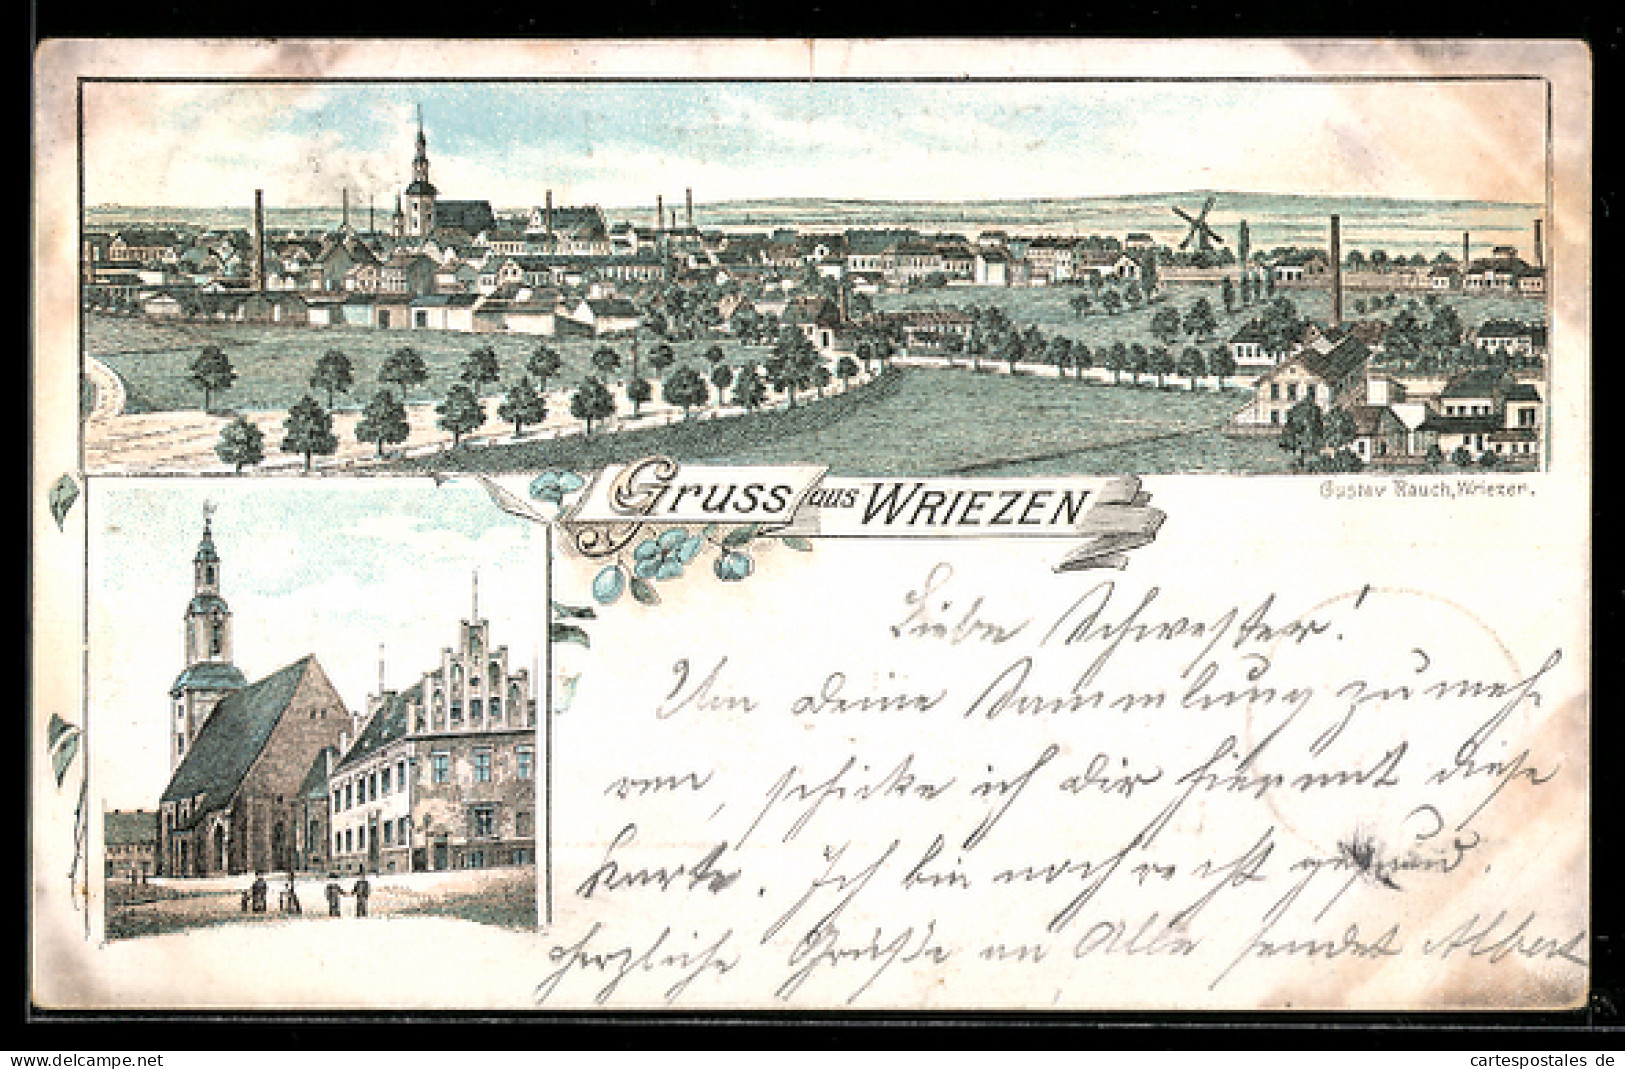 Gruss aus WRIEZEN
Gustav Rauch, Wriezen.
Liebe Schwester!
Um deine Sammlung zu meh-
ren, schicke ich dir hiermit diese
Karte. Ich bin noch recht gesund.
Herzliche Grüße an Alle sendet Albert
cartespostales de